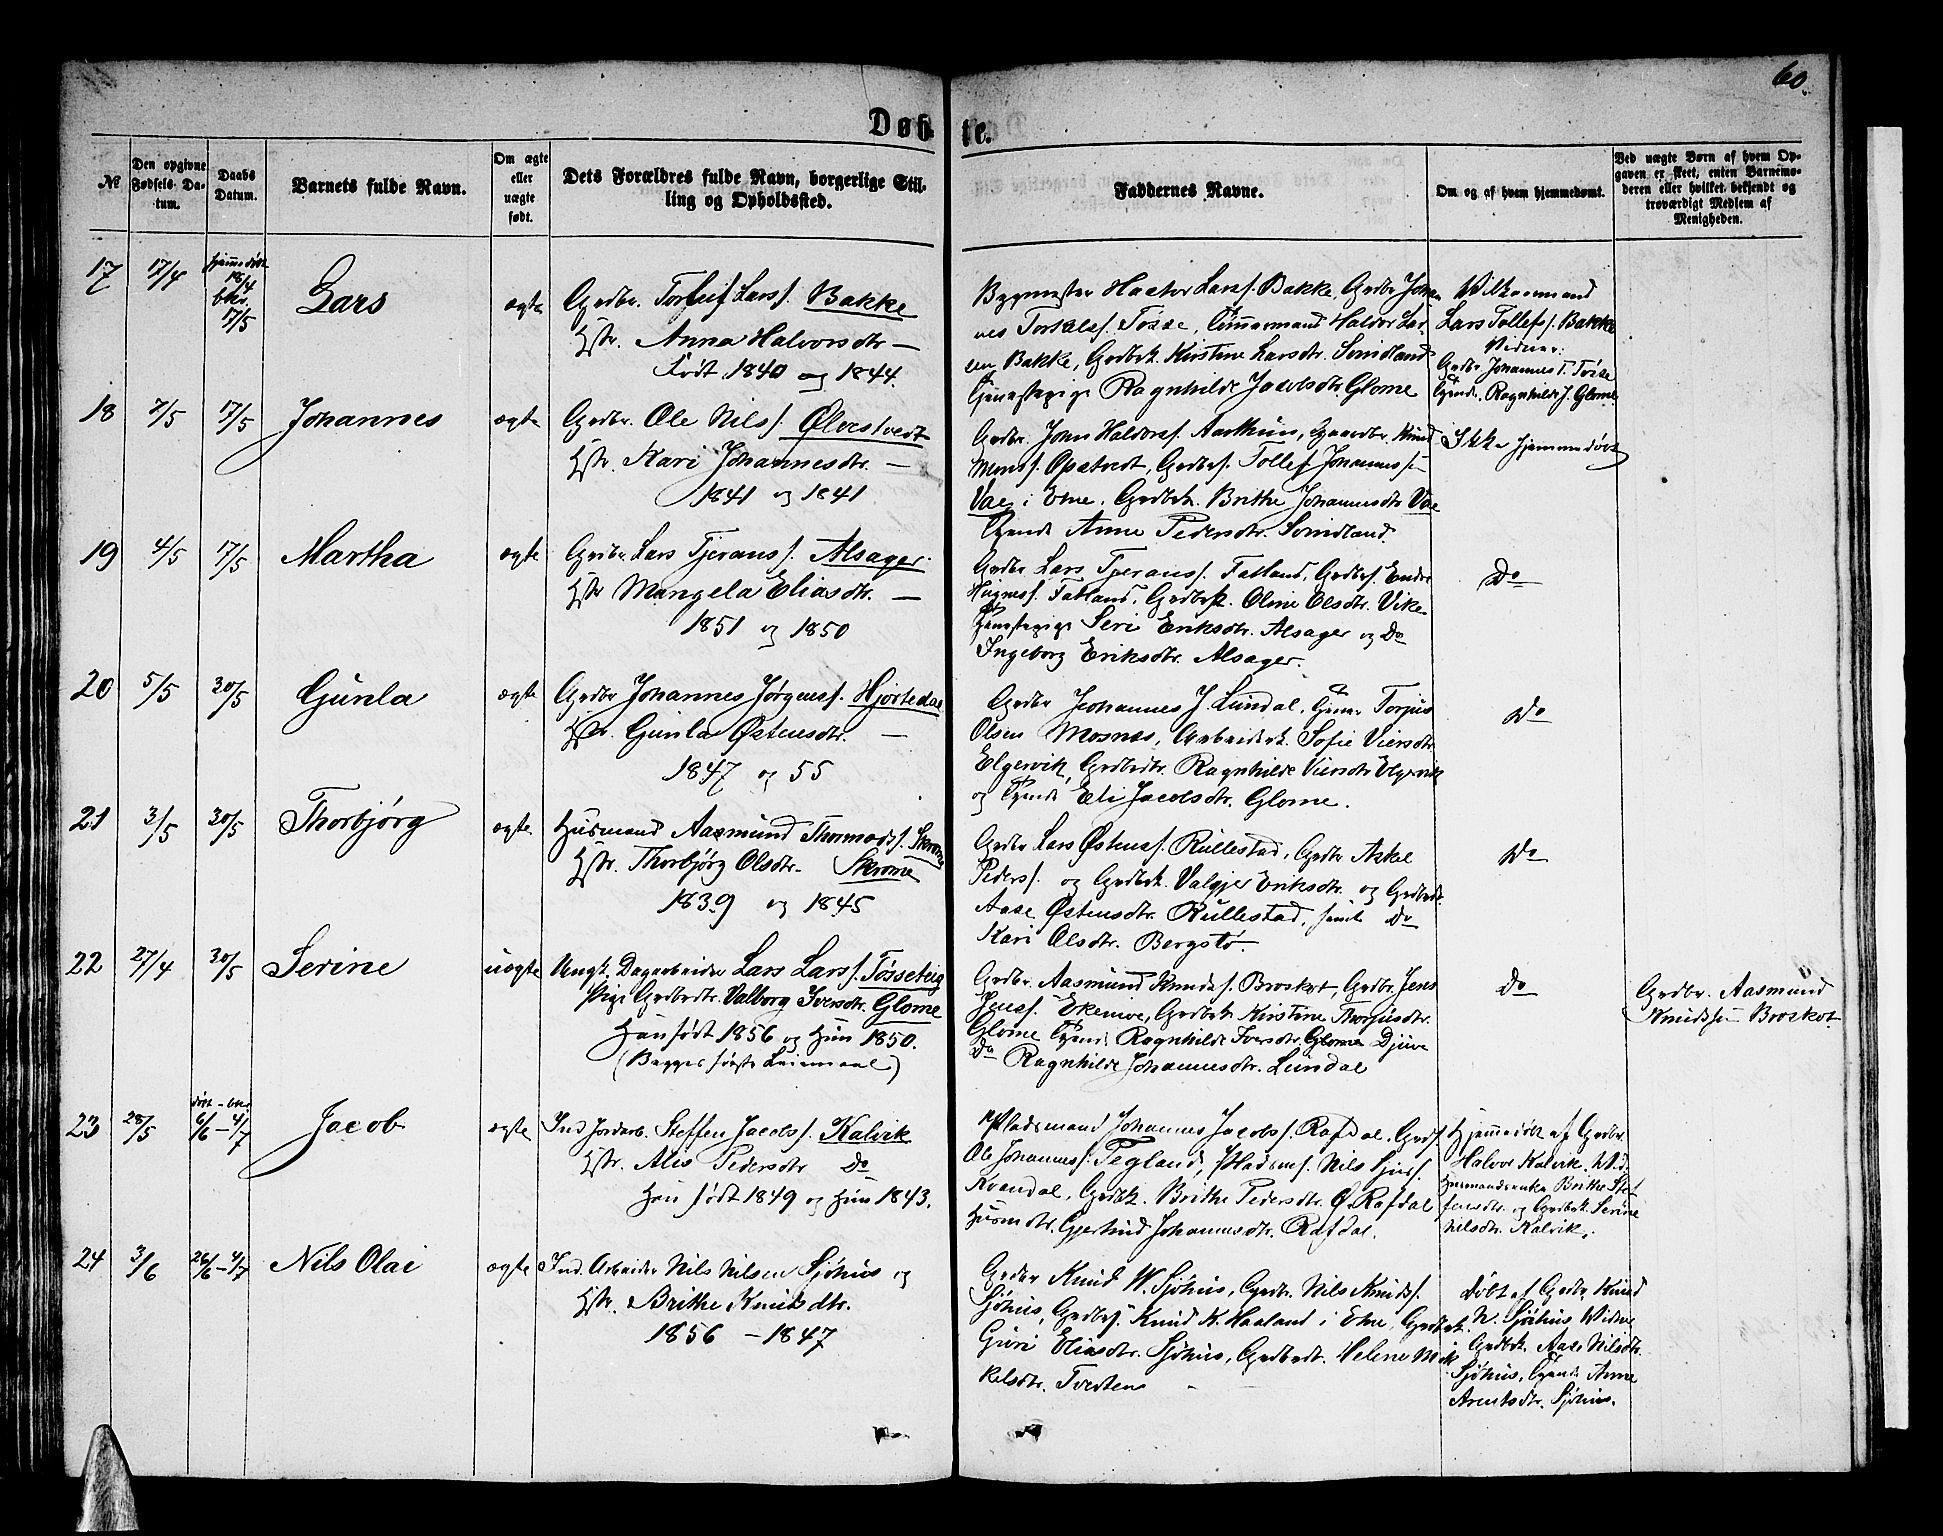 60.
Døb-
te.
№
Den opgivne Fødsels-Da-tum.
Daabs Datum.
Barnets fulde Navn.
Om ægte eller uægte født.
Dets Forældres fulde Navn, borgerlige Stil-
ling og Opholdssted.
Faddernes Navne.
Om og af hvem hjemmedøbt.
Ved uægte Børn af hvem Op-
gaven er skeet, enten Barnemo-
deren eller hvilket bekjendt og
troværdigt Medlem af
Menigheden.
17 17/4 hjemmedøbt 18/4 bkr. 17/5 Lars ægte Grdbr. Torleif Larss. Bakke
Hstr. Anna Halvorsdtr. —
Født 1840 og 1844.
Bygmester Hactor Larss. Bakke, Grdbr Johan
nes Torkelss. Tøsse, Tømmermand Haldor Lar
sen Bakke, Grdbrk. Kirstine Larsdtr. Svindland
Tjenestepige Ragnhilde Jacobsdtr. Glome
Vilkaarmand
Lars Tollefs. Bakke
Vidner:
Grdbr Johannes T. Tøsse
Tjende. Ragnhilde J. Glome
18 7/5 17/5 Johannes ægte Grdbr. Ole Nilss. Ølvestvedt
Hstr. Kari Johannesdtr. —
1841 og 1841.
Grdbr. John Haldors. Aarthun, Gaardbr. Knud
Monss. Opstvedt, Grdbrs. Tollef Johannessen
Vae i Etne, Grdbrk. Brithe Johannesdtr Vae
Tjende Anne Pedersdtr. Svindland.
Ikke hjemmedøbt
19 4/5 17/5 Martha ægte Grdbr Lars Tjeranss. Alsager.
Hstr Mangela Eliasdtr. —
1851 og 1850
Grdbr Lars Tjeranss. Fatland, Grdbrs. Endre
Hagness. Fatland, Grdbrk. Oline Olsdtr. Vike
Tjenestepige Seri Eriksdtr. Alsager og Do
Ingeborg Eriksdtr. Alsager.
Do
20 5/5 30/5 Gunla ægte Grdbr Johannes Jørgenss. Hjortedal
Hstr. Gunla Østensdtr. —
1847 og 55
Grdbr Johannes J. Lundal, Tjener Torjus
Olsen Mosnes, Arbeiderk. Sofie Viersdtr
Elgervik, Grdbrdtr. Ragnhilde Viersdtr Elgervik
og Tjende Eli Jacobsdtr. Glome.
Do
21 3/5 30/5 Thorbjørg ægte. Husmand Aasmund Thormodss. Skrome
Hstr. Thorbjørg Olsdtr. Skrome
1839 og 1845
Grdbr Lars Østenss. Rullestad, Grdbr Askel
Peders. og Grdbrk. Valgjer Eriksdtr. og Grdbrdt.
Aase Østensdtr. Rullestad, samt Do
Kari Olsdtr. Bergstø.
Do
22 27/4 30/5 Serine uægte Ungk. Dagarbeider Lars Larss. Tøsseteig
Pige Grdbrdtr. Valborg Iversdtr. Glome
Han født 1856 og Hun 1850.
(Begges første Leiermaal)
Grdbr. Aasmund Knudss. Broskot, Grdbr. Jens
Jenss. Ekemoe, Grdbrk Kirstine Thorjusdtr.
Glome Tjende Ragnhilde Iversdtr. Glome Djuve
Do Ragnhilde Johannesdtr. Lundal
Do
Grdbr. Aasmund
Knudssen Broskot.
23 28/5 døbt – bkr. 6/6 – 4/7 Jacob ægte Ind. Jordarb. Steffen Jacobss. Kalvik
Hstr. Alis Pedersdtr Do
Han født 1849 og Hun 1843.
Pladsmand Johannes Jacobss. Rafdal, Grds.
Ole Johanness. Tegland, Pladsms. Nils Sjurs.
Kvandal, Grdbrk. Brithe Pedersdtr. Ø. Rafdal
Husmdtr. Gjertrud Johannesdtr. Rafdal.
Hjemmedøbt af Grdbr.
Halvor Kalvik. Vid.
Husmandsenke Brithe Stef
fensdtr. og Grdbrk. Serine
Nilsdtr. Kalvik.
24 3/6 26/6 – 4/7 Nils Olai ægte Ind. Arbeider Nils Nilsen Sjøhus og
Hstr. Brithe Knutsdtr.
1856 – 1847
Grdbr Knud W. Sjøhus, Grdbr. Nils Knuds.
Sjøhus, Grdbrs. Knud K. Haaland i Etne, Grdbrk.
Guri Eliasdtr. Sjøhus, Grdbrdt. Helene Mik
kelsdtr. Tvedten
Døbt af Grdbr Knud
W. Sjøhus Vidne
Grdbrk. Aase Nilsdtr.
Sjøhus, Tjende Anne
Arentsdtr. Sjøhus.